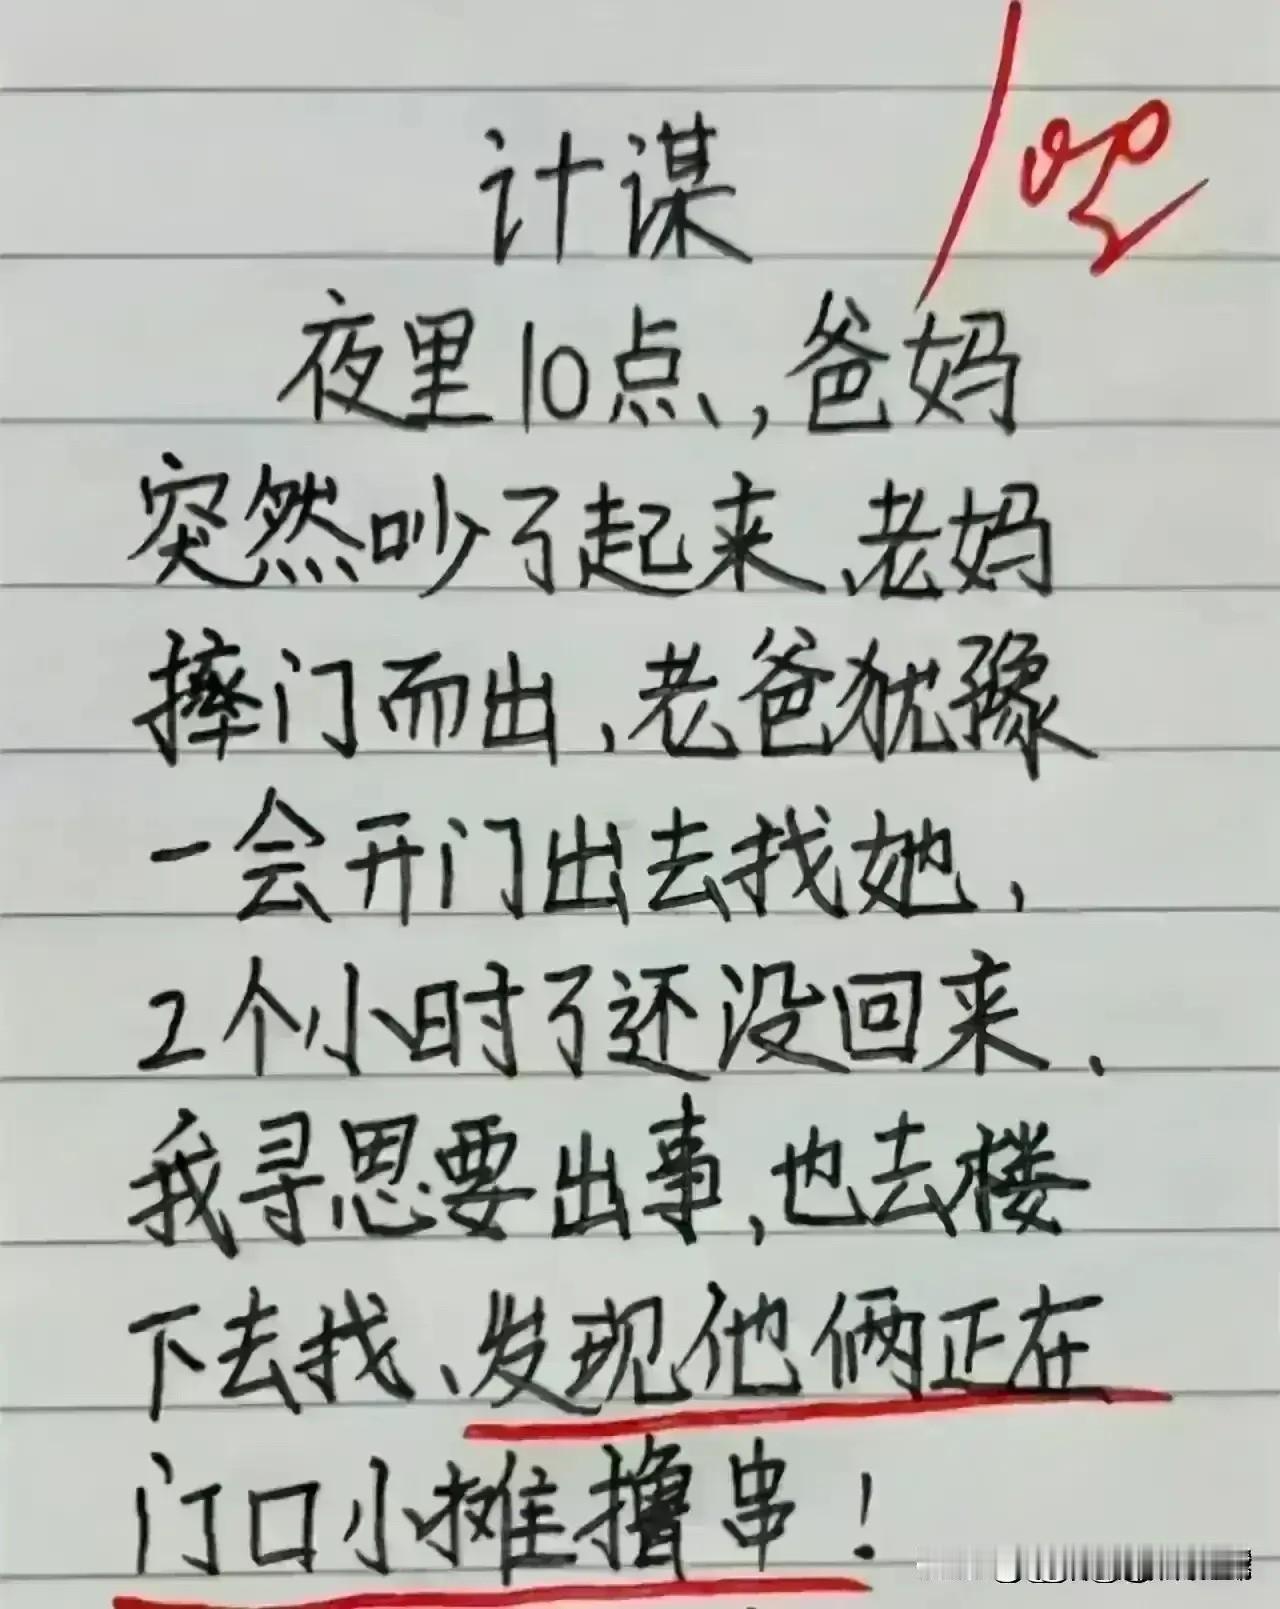 计谋
100
夜里10点,爸妈
突然吵了起来、老妈
摔门而出,老爸犹豫
一会开门出去找她,
2个小时了还没回来、
我寻思要出事,也去楼
下去找、发现他俩正在
门口小摊撸串!